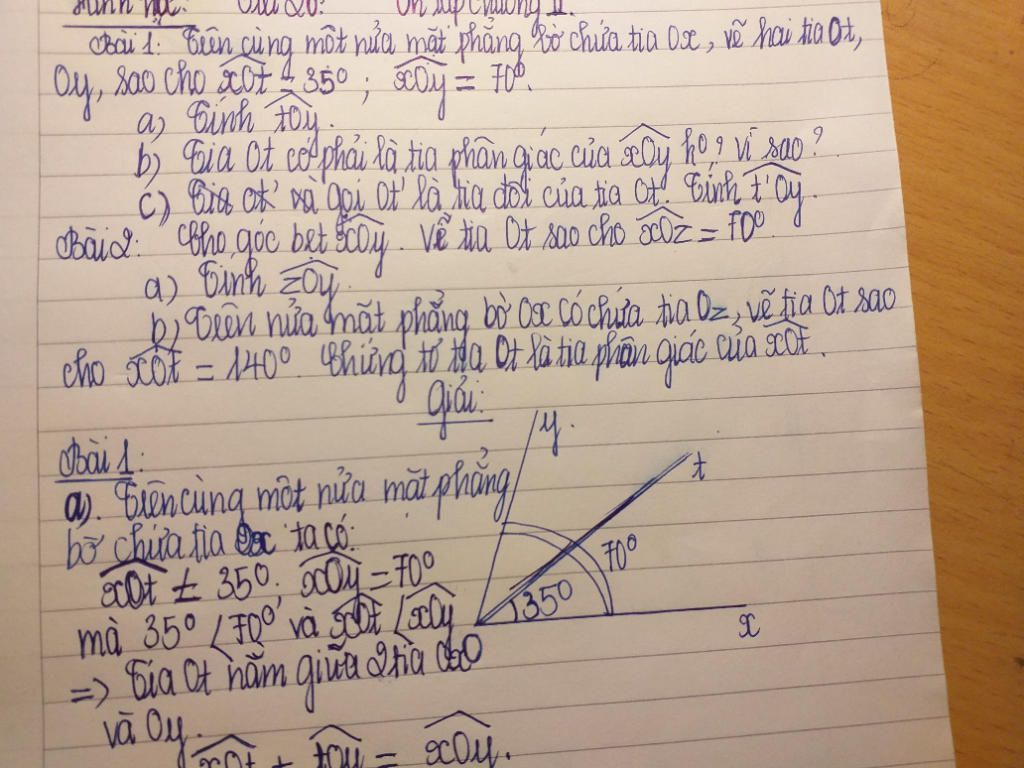 Hình học: Tiết 26: Ôn tập chương II.
Bài 1: Trên cùng một nửa mặt phẳng bờ chứa tia Ox, vẽ hai tia Ot,
Oy, sao cho xOt = 35°; xOy = 70°.
a) Tính tOy.
b) Tia Ot có phải là tia phân giác của xOy ko? vì sao?
c) Tia Ot' và gọi Ot' là tia đối của tia Ot. Tính t'Oy.
Bài 2: Cho góc bẹt xOy. Vẽ tia Ot sao cho xOz = 70°
a) Tính zOy.
b) Trên nửa mặt phẳng bờ Ox có chứa tia Oz, vẽ tia Ot sao
cho xOt = 140°. Chứng tỏ tia Ot là tia phân giác của xOt.
Giải:
Bài 1:
a). Trên cùng một nửa mặt phẳng
bờ chứa tia Ox ta có:
xOt = 35°; xOy = 70°
mà 35° < 70° và xOt < xOy
=> Tia Ot nằm giữa 2 tia OxO
và Oy.
xOt + tOy = xOy.
y
t
70°
35°
O
x